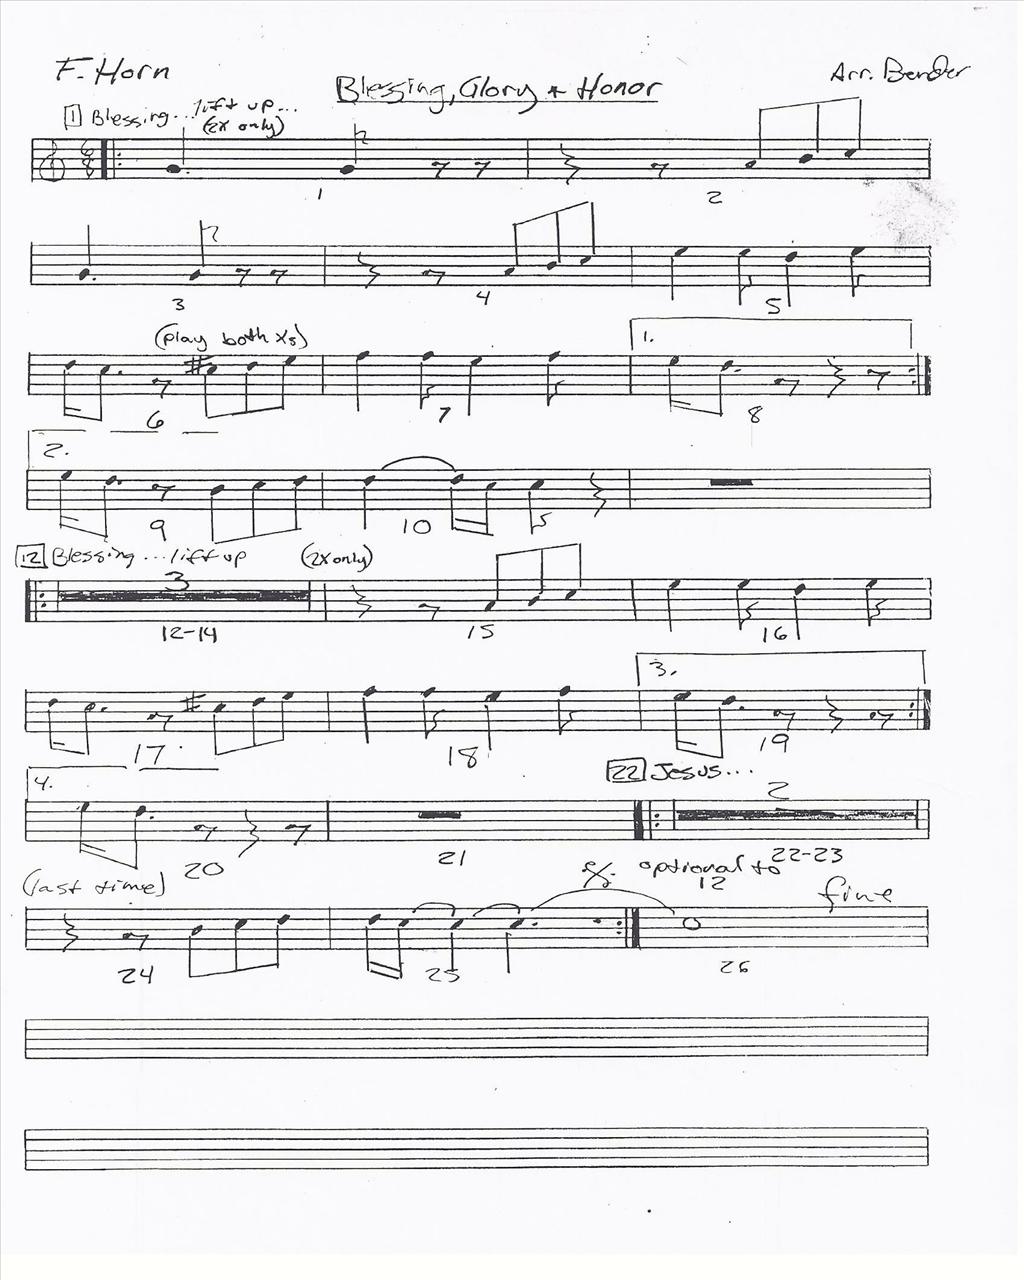 F. Horn
Blessing, Glory + Honor
Arr. Bender
1 Blessing... lift up...
(2x only)
1 2
3 4 5
(play both xs)
1.
6 7 8
2.
9 10
12 Blessing ... lift up (2x only)
3
12-14 15 16
3.
17 18 19
4.
22 Jesus...
2
20 21 22-23
(last time)
optional to
12
fine
24 25 26